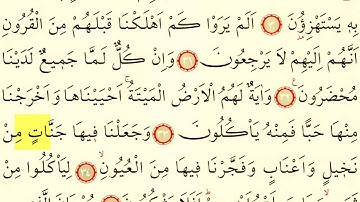 بِهٖ يَسْتَهْزِؤُنَ ﴿٣٠﴾ اَلَمْ يَرَوْا كَمْ اَهْلَكْنَا قَبْلَهُمْ مِنَ الْقُرُونِ
اَنَّهُمْ اِلَيْهِمْ لَا يَرْجِعُونَ ﴿٣١﴾ وَاِنْ كُلٌّ لَمَّا جَمٖيعٌ لَدَيْنَا
مُحْضَرُونَ ﴿٣٢﴾ وَاٰيَةٌ لَهُمُ الْاَرْضُ الْمَيْتَةُ اَحْيَيْنَاهَا وَاَخْرَجْنَا
مِنْهَا حَبًّا فَمِنْهُ يَاْكُلُونَ ﴿٣٣﴾ وَجَعَلْنَا فٖيهَا جَنَّاتٍ مِنْ
نَخٖيلٍ وَاَعْنَابٍ وَفَجَّرْنَا فٖيهَا مِنَ الْعُيُونِ ﴿٣٤﴾ لِيَاْكُلُوا مِنْ